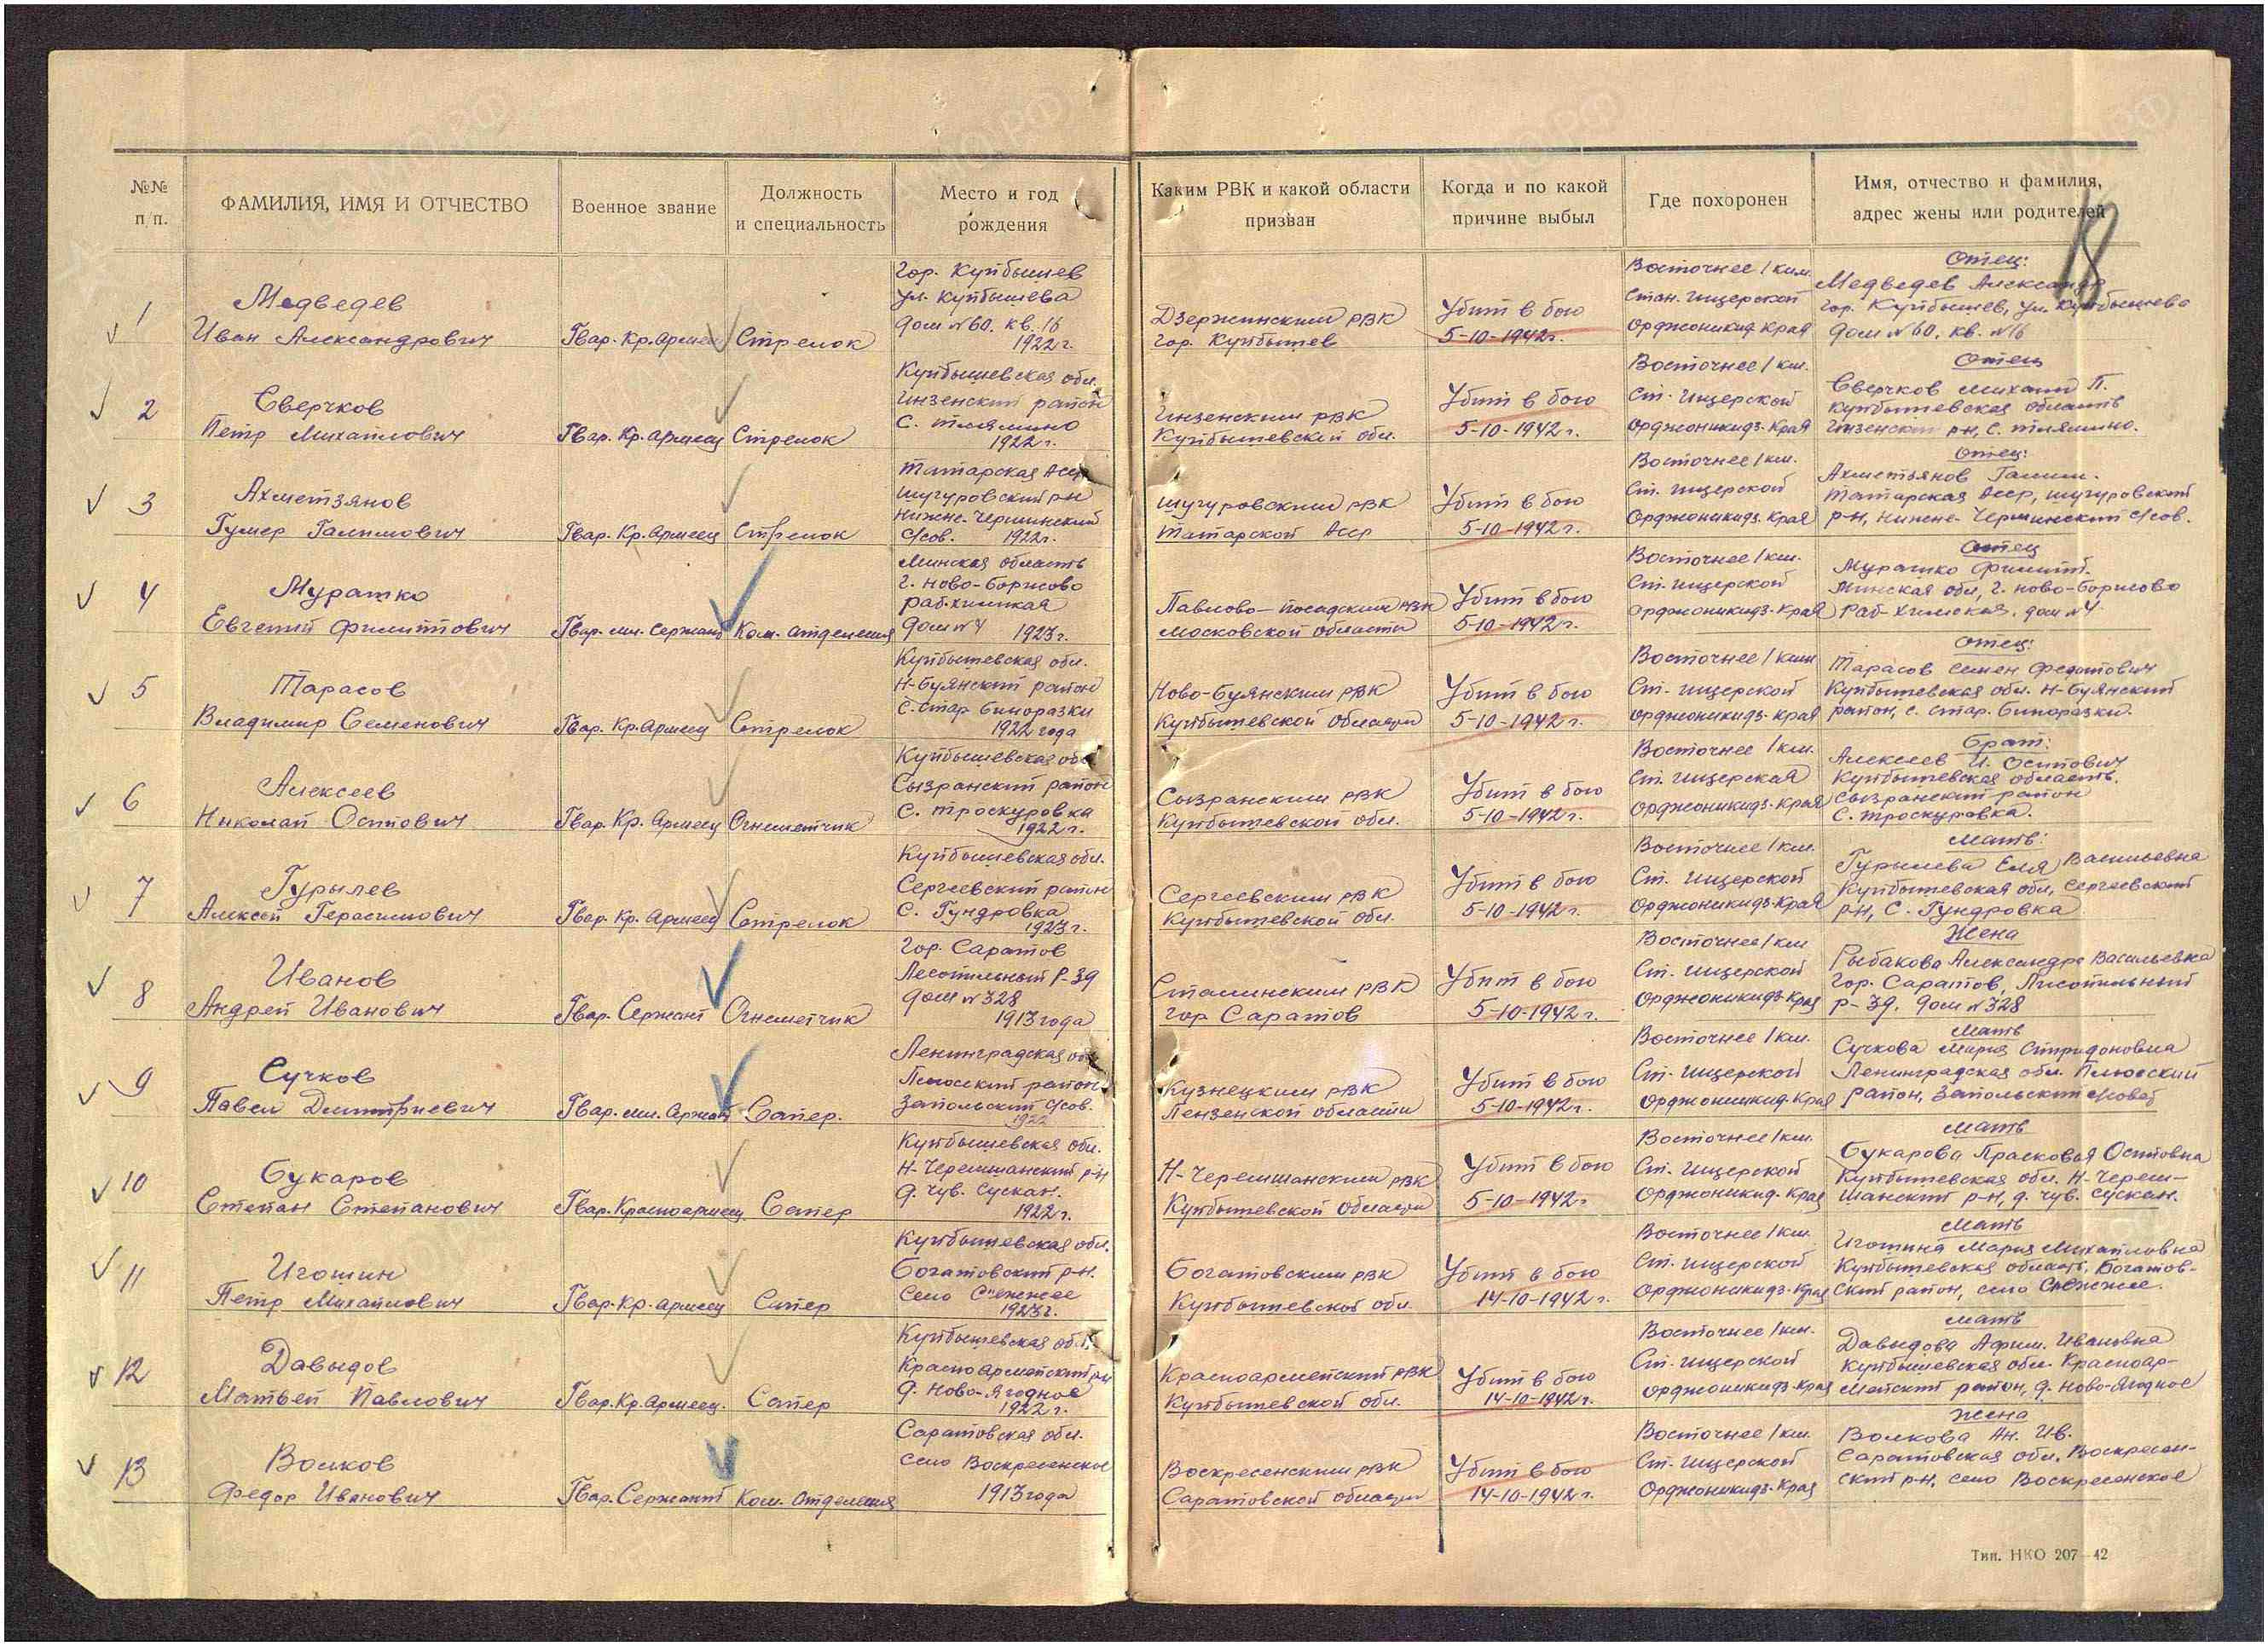 №№
п/п.
ФАМИЛИЯ, ИМЯ И ОТЧЕСТВО
Военное звание
Должность
и специальность
Место и год
рождения
Каким РВК и какой области
призван
Когда и по какой
причине выбыл
Где похоронен
Имя, отчество и фамилия,
адрес жены или родителей
18
1
Медведев
Иван Александрович
Гвар. Кр. Армеец
Стрелок
Гор. Куйбышев
ул. Куйбышева
дом №60. кв. 16
1922 г.
Дзержинским РВК
гор. Куйбышев
Убит в бою
5-10-1942г.
Восточнее 1 км.
Стан. Ищерской
Орджоникид. Края
Отец:
Медведев Александр
гор. Куйбышев, ул. Куйбышева
дом №60, кв. №16
2
Сверчков
Петр Михайлович
Гвар. Кр. Армеец
Стрелок
Куйбышевская обл.
Инзенский район
С. Тияшино
1922 г.
Инзенским РВК
Куйбышевской обл.
Убит в бою
5-10-1942 г.
Восточнее 1 км.
Ст. Ищерской
Орджоникидз. Края
Отец
Сверчков Михаил П.
Куйбышевская область
Инзенский р-н, с. Тияшино.
3
Ахметзянов
Гумер Галимович
Гвар. Кр. Армеец
Стрелок
Татарская Асср
Шугуровский р-н
Нижне-Чершинский
С/сов. 1922г.
Шугуровским РВК
Татарской Асср
Убит в бою
5-10-1942 г.
Восточнее 1 км.
Ст. Ищерской
Орджоникидз. Края
Отец:
Ахметьянов Галим.
Татарская Асср, Шугуровский
р-н, Нижне-Чершинский С/сов.
4
Мурашко
Евгений Филиппович
Гвар. мл. Сержант
Ком. отделения
Минская область
г. Ново-Борисово
раб. химикая
дом №4 1923 г.
Павлово-Посадским РВК
Московской области
Убит в бою
5-10-1942 г.
Восточнее 1 км.
Ст. Ищерской
Орджоникидз. Края
Отец
Мурашко Филипп.
Минская обл, г. Ново-Борисово
Раб-Химская, дом №4
5
Тарасов
Владимир Семенович
Гвар. Кр. Армеец
Стрелок
Куйбышевская обл.
Н-Буянский район
С. Стар Биноразки
1922 года
Ново-Буянским РВК
Куйбышевской области
Убит в бою
5-10-1942 г.
Восточнее 1 км
Ст. Ищерской
Орджоникидз. Края
Отец:
Тарасов Семен Федотович
Куйбышевская обл. Н-Буянский
район, с. Стар. Биноразки.
6
Алексеев
Николай Осипович
Гвар. Кр. Армеец
Огнеметчик
Куйбышевская обл
Сызранский район
С. Троскуровка
1922 г.
Сызранским РВК
Куйбышевской обл.
Убит в бою
5-10-1942 г.
Восточнее 1 км.
Ст. Ищерская
Орджоникидз. Края
Брат:
Алексеев И. Осипович
Куйбышевская область.
Сызранский район
С. Троскуровка.
7
Гурылев
Алексей Герасимович
Гвар. Кр. Армеец
Стрелок
Куйбышевская обл.
Сергеевский район
С. Гундровка
1923 г.
Сергеевским РВК
Куйбышевской обл.
Убит в бою
5-10-1942 г.
Восточнее 1 км.
Ст. Ищерской
Орджоникидз. Края
Мать:
Гурылева Еля Васильевна
Куйбышевская обл, Сергеевский
р-н, С. Гундровка
8
Иванов
Андрей Иванович
Гвар. Сержант
Огнеметчик
Гор. Саратов
Лесопильный Р-39
дом № 328
1913 года
Сталинским РВК
гор Саратов
Убит в бою
5-10-1942 г.
Восточнее 1 км
Ст. Ищерской
Орджоникидз. Края
Жена
Рыбакова Александра Васильевна
Гор. Саратов, Лисопильный
р-39. дом №328
9
Сучков
Павел Дмитриевич
Гвар. мл. Сержант
Сапер.
Ленинградская обл
Плюсский район
Запольский С/сов.
1922
Кузнецким РВК
Пензенской области
Убит в бою
5-10-1942г.
Восточнее 1 км.
Ст. Ищерской
Орджоникид. Края
Мать
Сучкова Мария Спиридоновна
Ленинградская обл. Плюсский
район, Запольский с/совет
10
Букаров
Степан Степанович
Гвар. Красноармеец
Сапер
Куйбышевская обл.
Н-Черемшанский р-н
д. Чув. Сускан.
1922 г.
Н-Черемшанским РВК
Куйбышевской области
Убит в бою
5-10-1942 г.
Восточнее 1 км.
Ст. Ищерской
Орджоникид. Края
Мать
Букарова Прасковая Осиповна
Куйбышевская обл. Н-Черем-
шанский р-н, д. Чув. Сускан.
11
Игошин
Петр Михайлович
Гвар. Кр. Армеец
Сапер
Куйбышевская обл.
Богатовский р-н.
Село Съежжее
1923 г.
Богатовским РВК
Куйбышевской обл.
Убит в бою
14-10-1942 г.
Восточнее 1 км.
Ст. Ищерской
Орджоникидз. Края
Мать
Игошина Мария Михайловна
Куйбышевская область, Богатов-
ский район, село Съежжее.
12
Давыдов
Матвей Павлович
Гвар. Кр. Армеец.
Сапер
Куйбышевская обл.
Красноармейский р-н
д. Ново-Ягодное
1922 г.
Красноармейский РВК
Куйбышевской обл.
Убит в бою
14-10-1942г.
Восточнее 1 км.
Ст. Ищерской
Орджоникидз. Края
Мать
Давыдова Афим. Ивановна
Куйбышевская обл. Красноар-
мейский район, д. Ново-Ягодное
13
Волков
Федор Иванович
Гвар. Сержант
Ком. отделения
Саратовская обл.
Село Воскресенское
1913 года
Воскресенским РВК
Саратовской области
Убит в бою
14-10-1942 г.
Восточнее 1 км.
Ст. Ищерской
Орджоникидз. Края
Жена
Волкова Ан. Ив.
Саратовская обл, Воскресен-
ский р-н, село Воскресенское
Тип. НКО 207—42